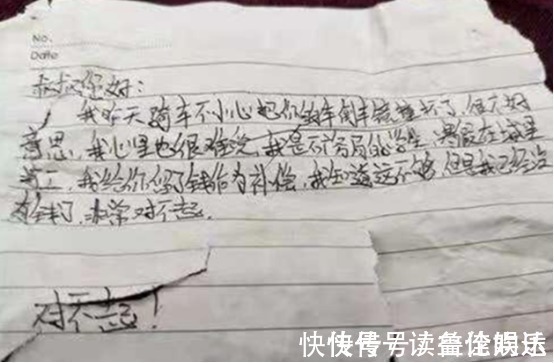 No.
Date
叔叔您好:
我昨天骑车不小心把你的车倒车镜撞坏了,很不好
意思,我心里也很难受,我是 的学生,寒假在城里
打工,我给你 了钱作为补偿,我知道远不够,但是我已经没
有钱了,非常对不起.
对不起!
快 号 读 娱乐